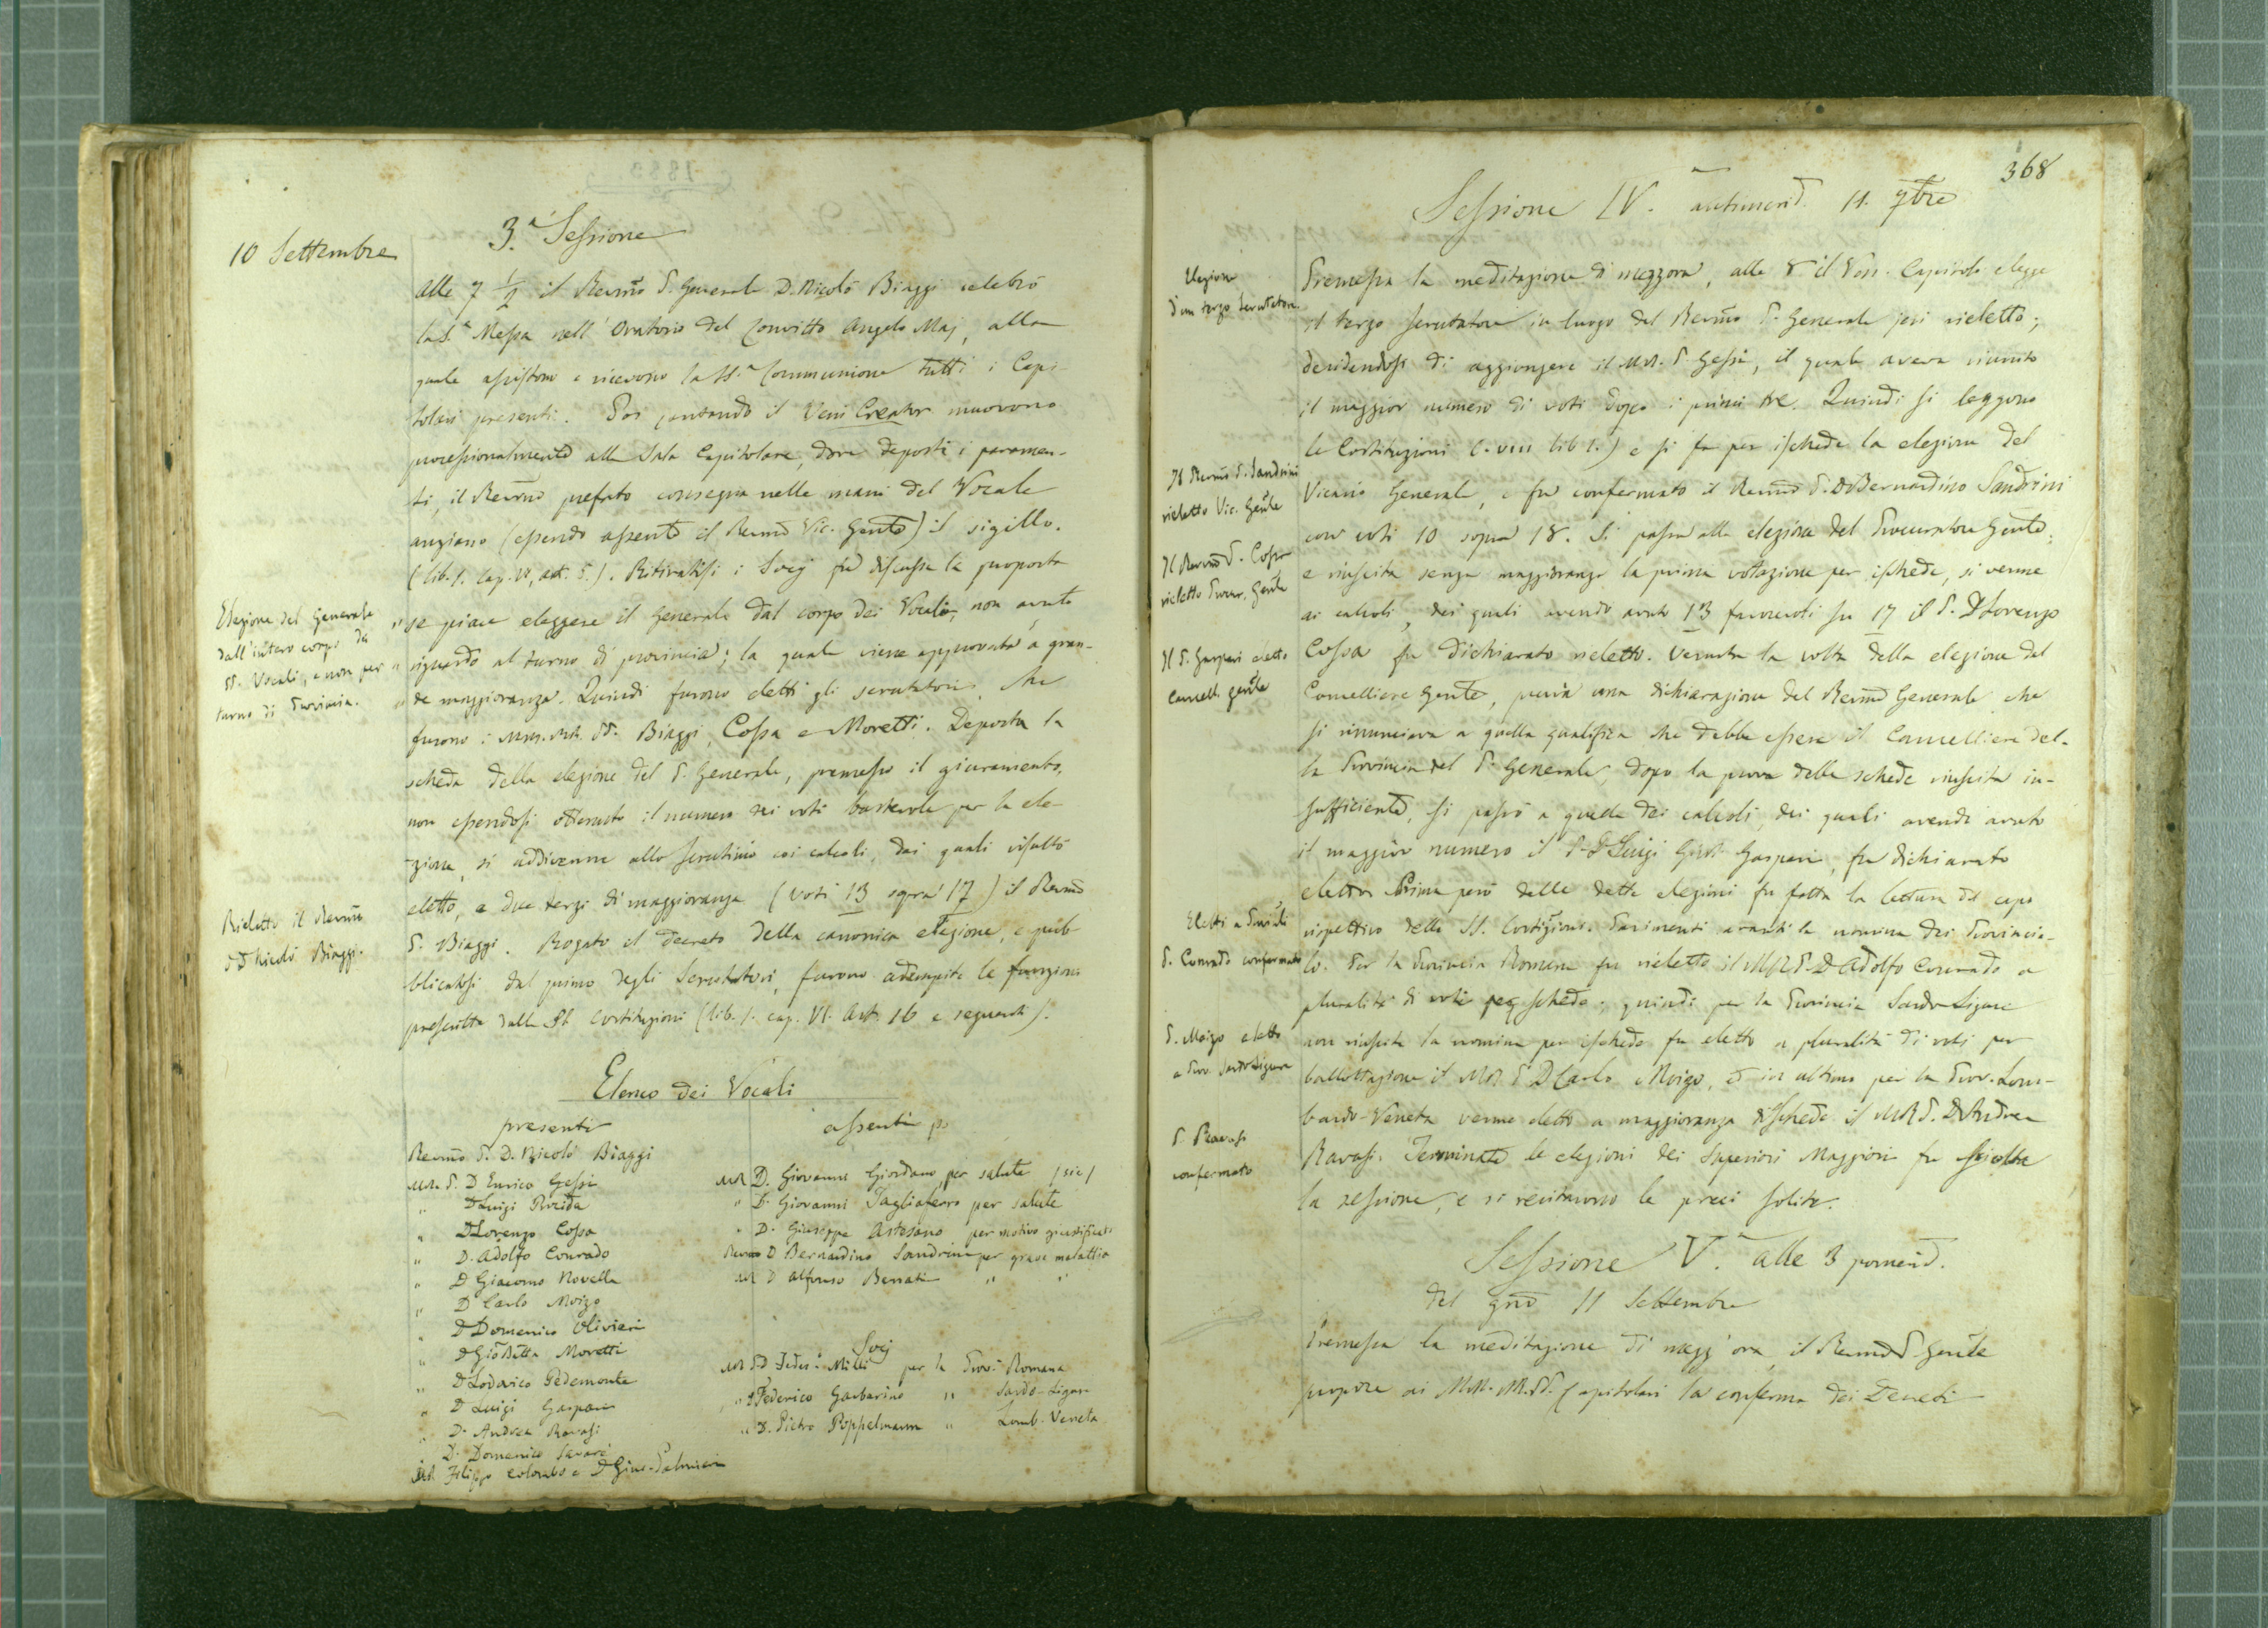 3.ª Sessione
10 Settembre
Alle 7 1/2 il Revmo P. Generale D. Nicolò Biaggi celebrò
la S.ª Messa nell' Oratorio del Convitto Angelo Maj, alla
quale assistono e ricevono la SS.ª Communione tutti i Capi-
tolari presenti. Poi cantando il Veni Creator muovono
processionalmente alla Sala Capitolare, dove deposti i paramen-
ti, il Revmo prefato consegna nelle mani del Vocale
anziano (essendo assente il Revmo Vic. Gente) il sigillo.
(lib. 1. Cap. VI, art. 5.). Ritiratisi i Socj fu discussa la proposta
Elezione del Generale
dall'intero corpo dei
PP. Vocali, e non per
turno di Provincia.
" se piace eleggere il Generale dal corpo dei Vocali, non avuto
" riguardo al turno di provincia; la quale viene approvata a gran-
" de maggioranza. Quindi furono eletti gli scrutatori, che
furono i MM. RR. PP. Biaggi, Cossa e Moretti. Deposta la
scheda della elezione del P. Generale, premesso il giuramento,
non essendosi ottenuto il numero dei voti bastevole per la ele-
zione, si addivenne allo scrutinio coi calcoli, dai quali risultò
eletto, a due terzi di maggioranza (voti 13 sopra 17) il Revmo
Rieletto il Revmo
P. D Nicolò Biaggi.
P. Biaggi. Rogato il decreto della canonica elezione, e pub-
blicatosi dal primo degli Scrutatori, furono adempite le funzioni
prescritte dalle SS. Costituzioni (lib. 1. cap. VI. art. 16 e seguenti).
Elenco dei Vocali
presenti
Revmo P. D. Nicolò Biaggi
M.R. P. D Enrico Gessi
" D Luigi Procida
" D Lorenzo Cossa
" D. Adolfo Conrado
" D Giacomo Novella
" D Carlo Moizo
" D Domenico Olivieri
" D Gio Batta Moretti
" D Lodovico Pedemonte
" D Luigi Gaspari
" D. Andrea Ravasi
" D. Domenico Savarè
MR Filippo Colombo e D Gius. Palmieri
assenti
MR D. Giovanni Giordano, per salute (sic)
" D. Giovanni Tagliaferro per salute
" D. Giuseppe Artesano per motivo giustificato
Revmo D Bernardino Sandrini per grave malattia
MR D Alfonso Benati " "
Socj
MR P.D Feder. Milli per la Prov. Romana
" D Federico Garbarino " Sardo-Ligure
" D. Pietro Poppelmann " Lomb. Veneta
368
Sessione IV. antimerid. 11. 7bre
Elezione
d'un terzo Scrutatore
Premessa la meditazione di mezzora, alle 8 il Ven. Capitolo elegge
il terzo scrutatore in luogo del Revmo P. Generale jeri rieletto;
decidendosi di aggiungere il M.R. P. Gessi, il quale aveva riunito
il maggior numero di voti dopo i primi tre. Quindi si leggono
le Costituzioni C. VIII lib 1.) e si fa per ischede la elezione del
Il Revmo P. Sandrini
rieletto Vic. Gente
Vicario Generale, e fu confermato il Revmo P. D Bernardino Sandrini
con voti 10 sopra 18. Si passa alla elezione del Procuratore Gente,
Il Revmo P. Cossa
rieletto Procur. Gente
e riuscita senza maggioranza la prima votazione per ischede, si venne
ai calcoli, dei quali avendo avuto 13 favorevoli su 17 il P. D Lorenzo
Il P. Gaspari eletto
Cancell. gente
Cossa fu dichiarato rieletto. Venuta la volta della elezione del
Cancelliere Gente, previa una dichiarazione del Revmo Generale che
si rinunciava a quella qualifica che debba essere il Cancelliere del-
la Provincia del P. Generale, dopo la prova delle schede riuscita in-
sufficiente, si passò a quella dei calcoli, dei quali avendo avuto
il maggior numero il P. D Luigi Gaspari, fu dichiarato
eletto. Prima però delle dette elezioni fu fatta la lettura del capo
Eletti a Provinciali
rispettivo delle SS. Costituzioni. Parimenti avanti la nomina dei Provincia-
P. Conrado confermato
li. Per la Provincia Romana fu rieletto il M.R. P. D Adolfo Conrado a
pluralità di voti per schede; quindi per la Provincia Sardo-Ligure
P. Moizo eletto
a Prov. Sardo Ligure
non riuscita la nomina per ischede fu eletto a pluralità di voti per
ballottazione il MR P D Carlo Moizo, ed in ultimo per la Prov. Lom-
bardo-Veneta venne eletto a maggioranza di schede il M.R P. D Andrea
P. Ravasi
confermato
Ravasi. Terminate le elezioni dei Superiori Maggiori fu sciolta
la sessione, e si recitarono le preci solite.
Sessione V. alle 3 pomerid.
del gno 11 Settembre
Premessa la meditazione di mezz'ora, il Revmo P. Gente
propone ai M.M. RR. PP. Capitolari la conferma dei Decreti